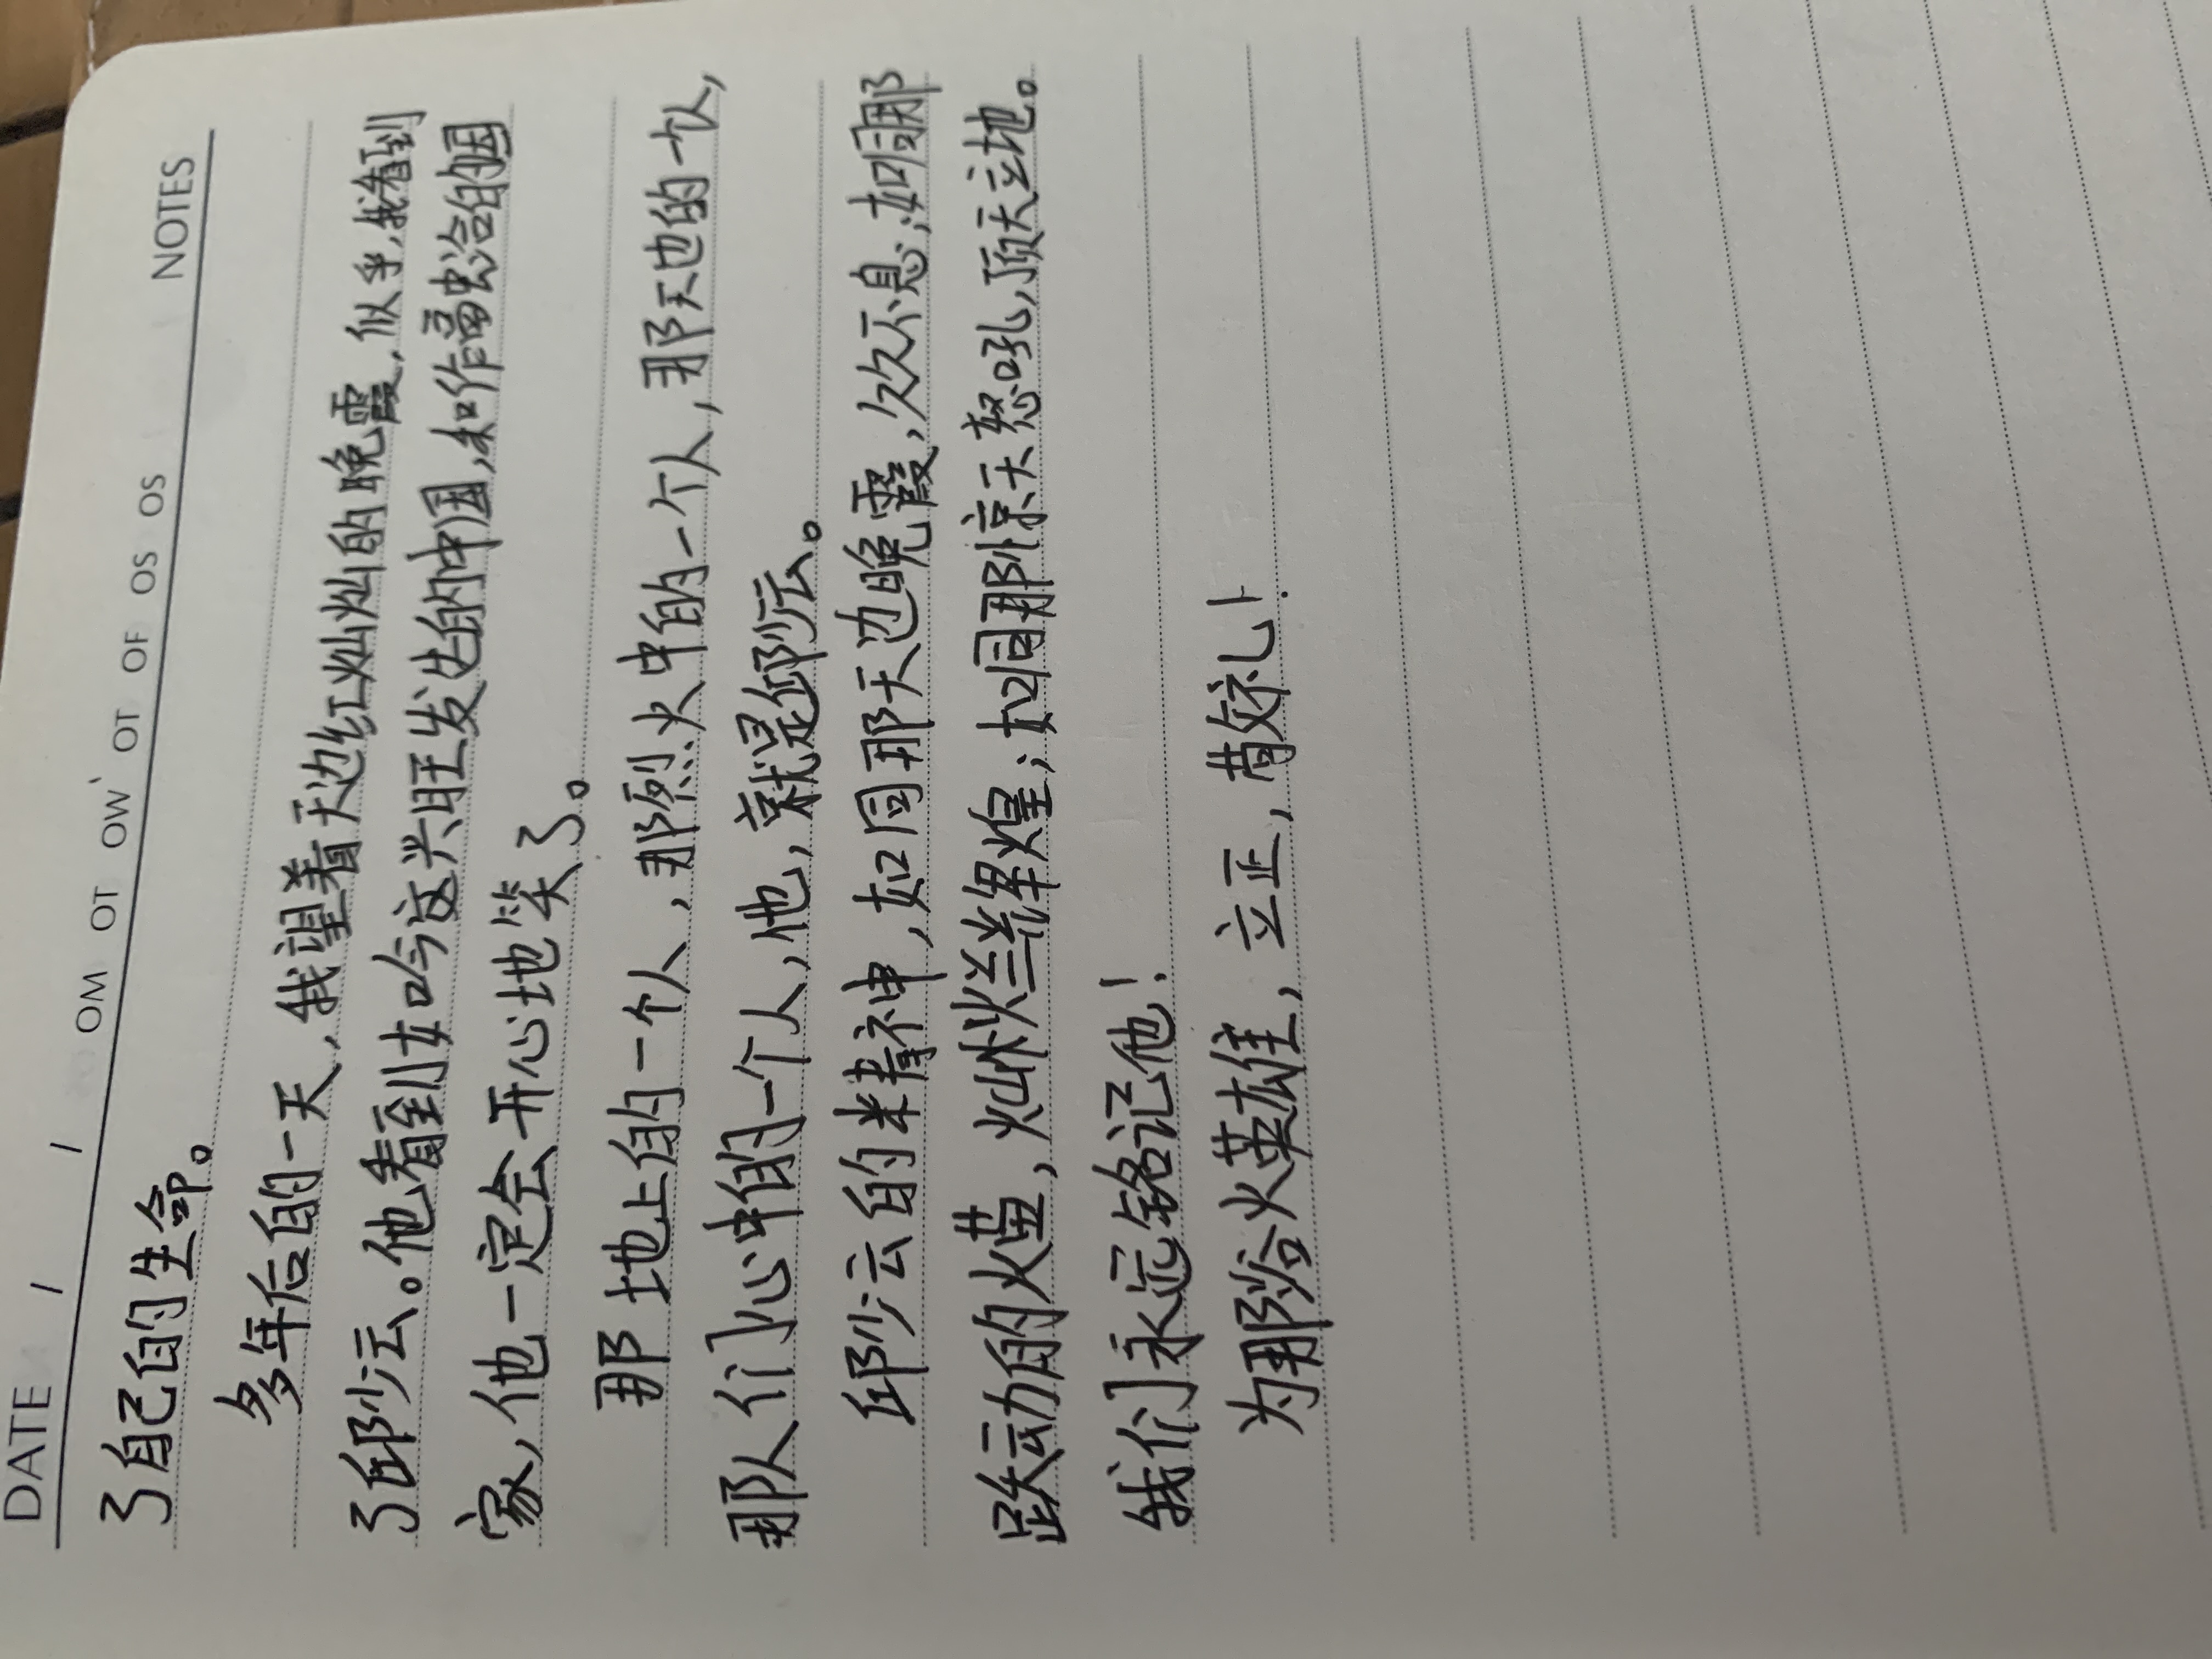 DATE / / OM OT OW OT OF OS OS NOTES
了自己的生命。
多年后的一天,我望着天边红灿灿的晚霞,似乎,我看到
了邱少云。他看到如今这兴旺发达的中国,和作融洽的国
家,他一定会开心地笑了。
那地上的一个人,那烈火中的一个人,那天边的一个人,
那人们心中的一个人,他,就是邱少云。
邱少云的精神,如同那天边晚霞,久久不息;如同那
跃动的火苗,灿烂辉煌;如同那惊天怒吼,顶天立地。
我们永远铭记他!
为那火英雄,立正,敬礼!